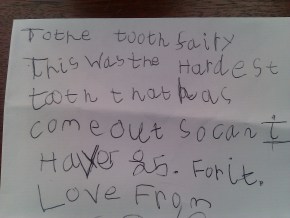 To the tooth fairy
This was the Hardest
tooth that has
come out so can I
Have £5. For it.
Love From